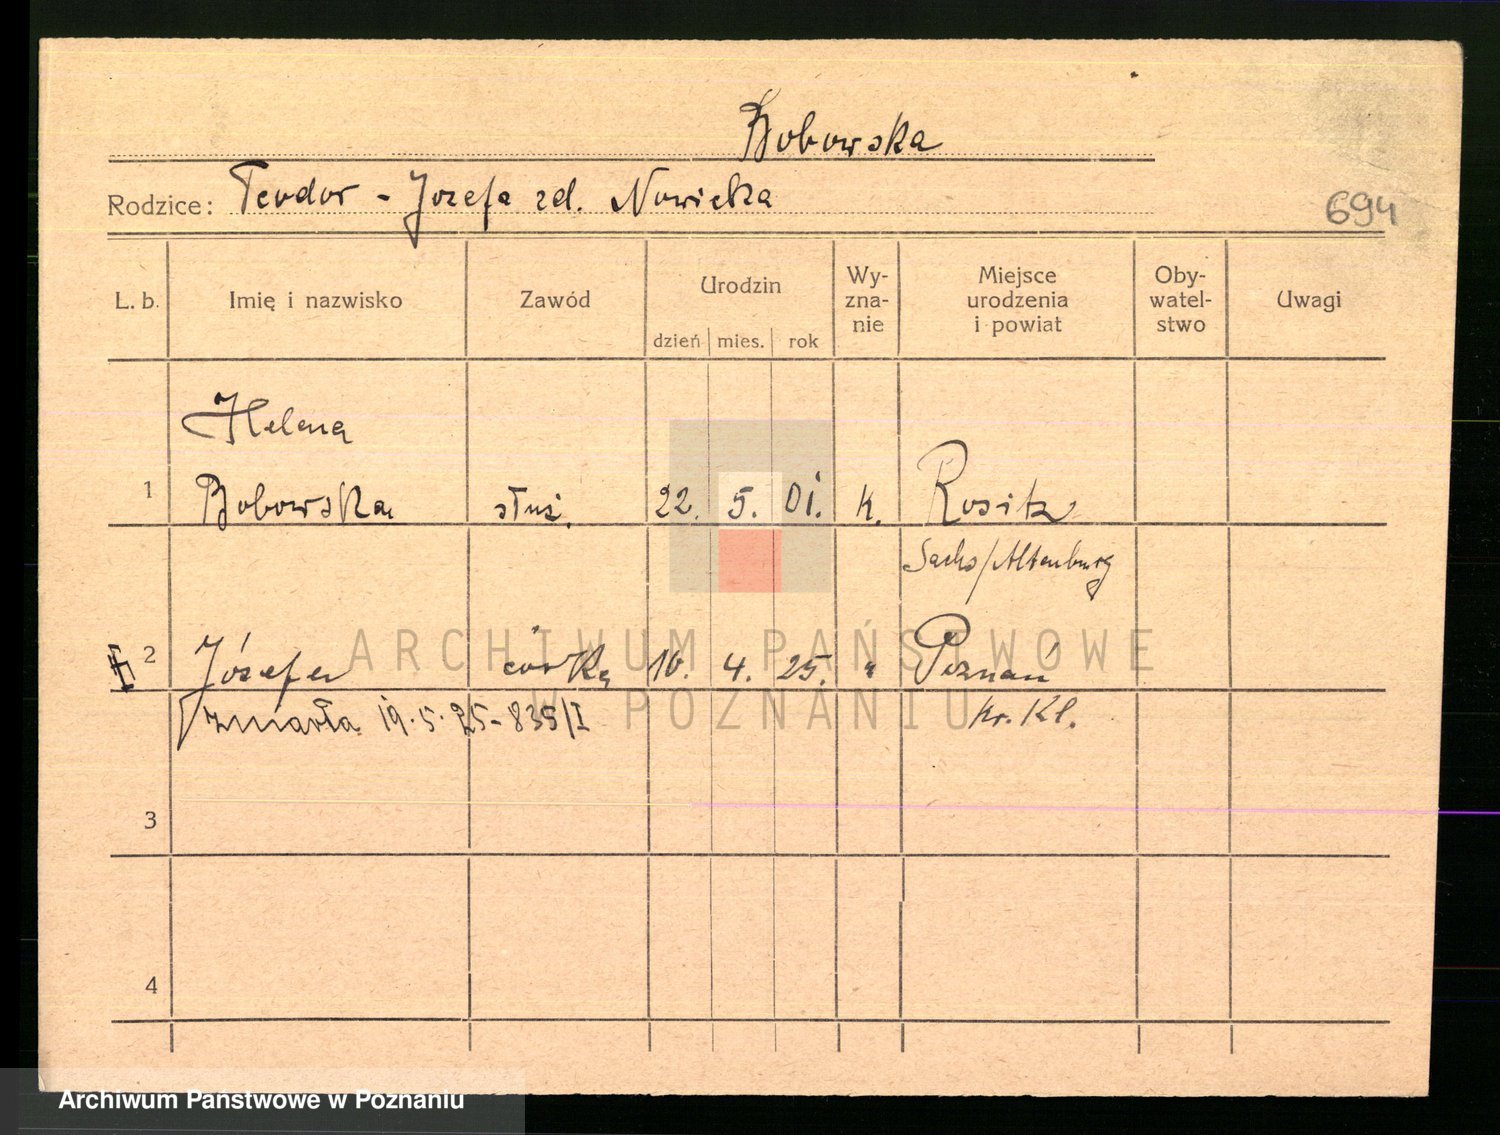 Bobowska
Rodzice: Teodor - Józefa zd. Nowicka
694
L. b. Imię i nazwisko Zawód Urodzin Wy-zna-nie Miejsce urodzenia i powiat Oby-watel-stwo Uwagi
dzień mies. rok
Helena
1 Bobowska służ. 22. 5. 01. k. Rositz
Sachs/Altenburg
2 Józefa córka 10. 4. 25. " Poznań
zmarła 19.5.25-835/I Kr. Kl.
3
4
ARCHIWUM PAŃSTWOWE
W POZNANIU
Archiwum Państwowe w Poznaniu